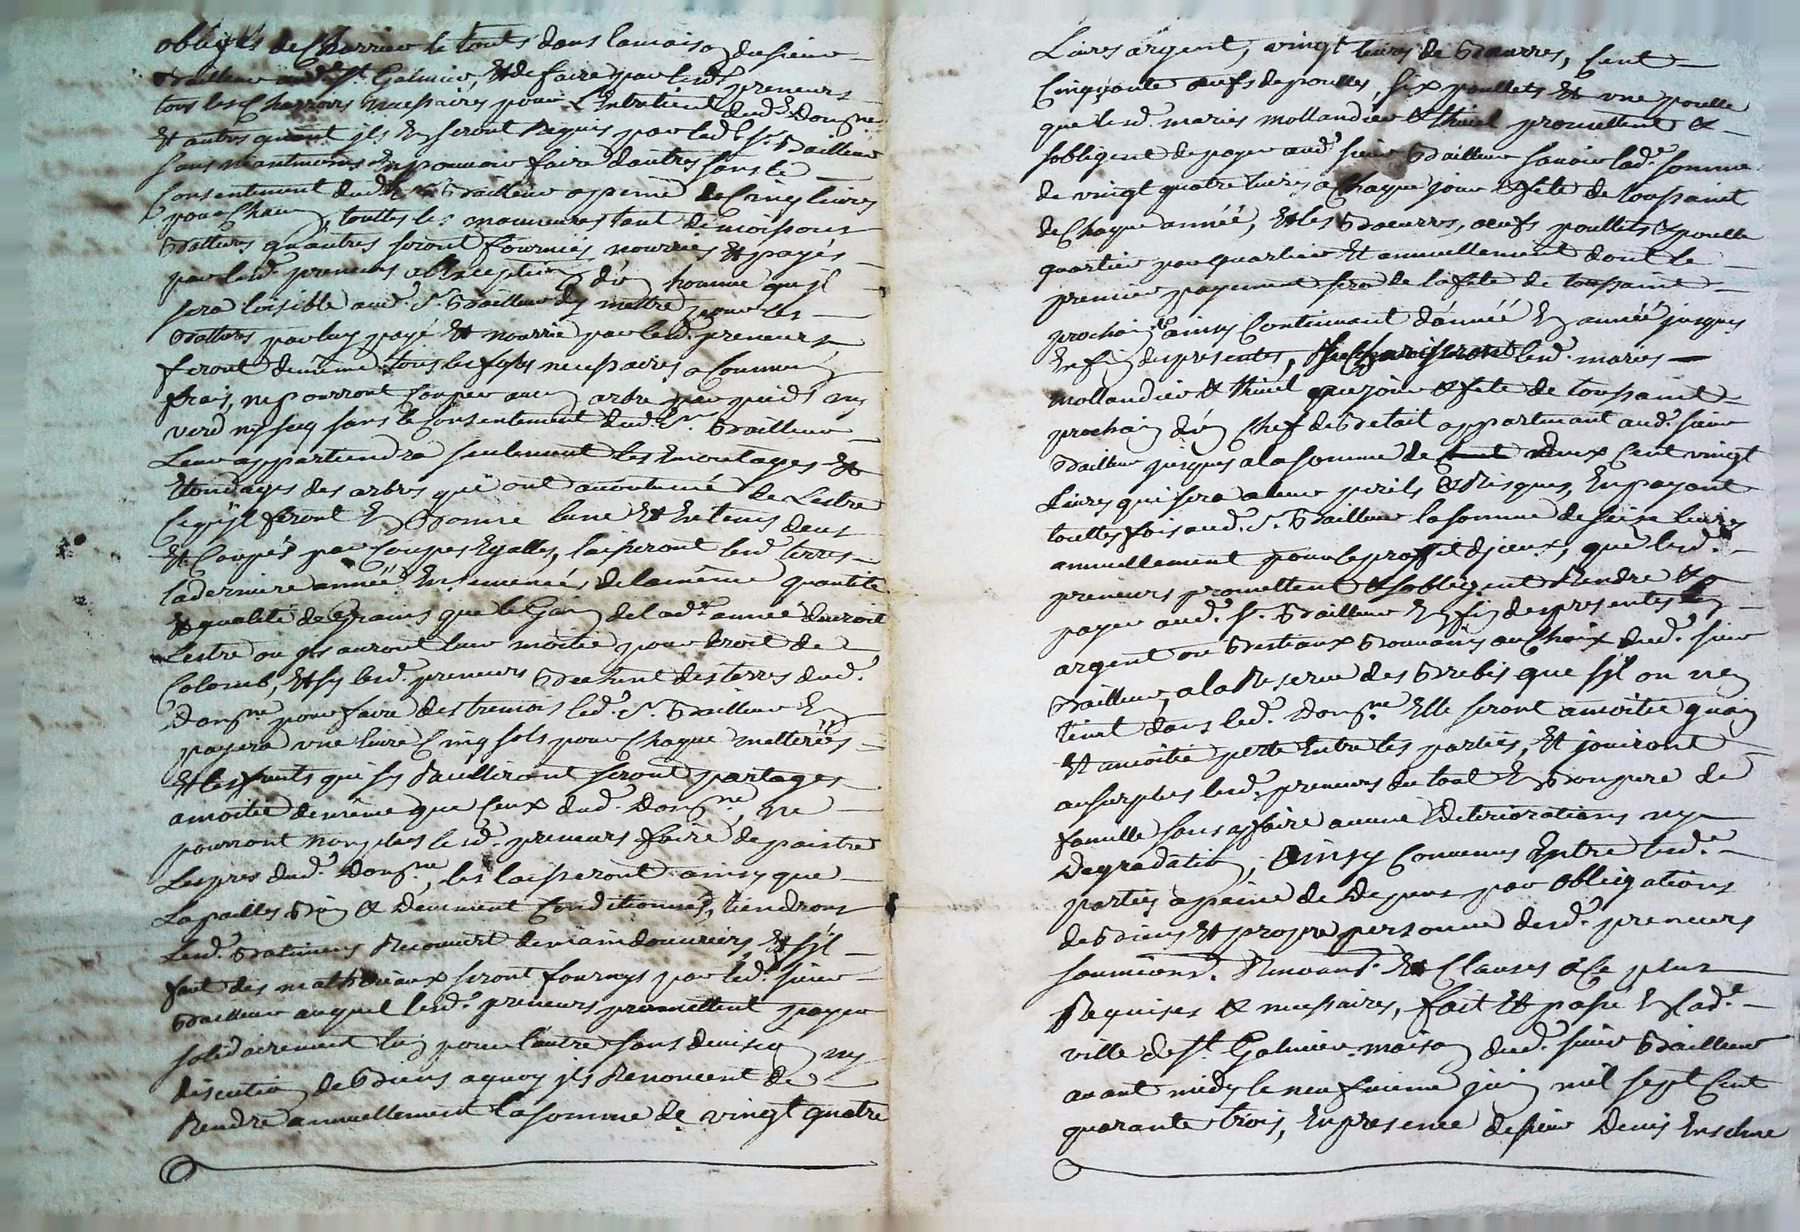 obligés de Charrier le touts dans lamaison dusieur
Bailleur aud.t St Galmier, Et de faire par lesd.s preneurs
tous les Charrois necessaires pour L'Entretient dud.t Domne
Et autres quant jls En seront Requis par led.t Sr. Bailleur
sans neantmoins En pouvoir faire dautres sans le
Consentement dud.t Sr Bailleur apeine de Cinq livres
pour Chacun, touttes les manœuvres tant de moissons
Batteurs quautres seront fournies nourries Et payés
par lesd. preneurs alexception d'un homme qu'jl
sera loisible aud. Sr. Bailleur dy mettre pour les
Battors par luy payé Et nourrie par lesd. preneurs
feront demême tous les fossés necessaires a Communs
frais, ne pourront Couper aucun arbre par pieds ny
verd ny secq sans le Consentement dud. Sr Bailleur
Leur appartiendra seulement les Emontages Et
tondages des arbres qui ont accoutumé de Lestre
Ce qu'jl feront En Bonne lune Et En tems dans
Et Coupés par Coupes Egalles, laisseront lesd. terres
laderniere année Ensemencés delamême quantité
Et qualité de Grains que le Gain de lad.e année devroit
Lestre ou jls auront leur moitié pour droit de
Colomb, Et sy lesd. preneurs Bechent des terres dud.
Domne pour faire des tremois led. Sr. Bailleur En
payera une livre Cinq sols pour Chaque metterée
Et les fruits qui sy Recüilliront seront partages
amoitié demême que Ceux dud. Domne, ne
pourront non plus lesd. preneurs faire depaistre
Les pres dud. Domne, les laisseront ainsy que
La pailles Bien Et Deument Conditionnés, tiendront
Lesd. Batimens Recouvert demain douvriers, Et s'jl
faut des matheriaux seront fournys par led. sieur
Bailleur auquel lesd. preneurs promettent payer
solidairement l'un pour l'autre sans division ny
discution de Biens aquoy jls Renoncent de
Rendre annuellement la somme de vingt quatre
Livres argent, vingt livres de Baurres, Cent
Cinquante œufs de poulles, six poullets Et une poulle
que lesd. mariés mollandier & thiel promettent &
sobligent de payer aud. sieur Bailleur savoir lad.e somme
de vingt quatre livres a Chaque jour & fête de toussaint
de Chaque année, Et les Baeurres, œufs poullets & poulle
quartier par quartier Et annuellement dont le
premier payement sera de la fête de toussaint
prochain & ainsy Continuant d'année En année jusques
En fin des presentes, lesd. mariés
mollandier & thiel que jour & fête de toussaint
prochain d'un Chef de Betail appartenant aud. sieur
Bailleur jusques a la somme de deux Cent vingt
Livres qui sera a leur perils & Risques, En payant
touttes fois aud. Sr. Bailleur la somme de seize livres
annuellement pour le proffit djceux, que lesd.
preneurs promettent & sobligent Rendre &
payer aud. Sr. Bailleur En fin des presentes En
argent ou Bestiaux Bonnains au Choix dud. sieur
Bailleur, a la Reserve des Brebis que s'jl on n'en
tient dans led. Domne Elle seront amoitié gain
Et amoitié perte Entre les parties, Et jouiront
au surplus lesd. preneurs du tout En Bon pere de
famille sans y faire aucune Deteriorations ny
Degradation, Ainsy Convenus Entre lesd.
parties apeine de Depens par obligations
de Biens Et propre personne desd. preneurs
soumions. Renonons. Et Clauses a Ce plus
Requises & necessaires, fait Et passé En lad.e
ville de St. Galmier maison dud. sieur Bailleur
avant midy le neufvieme juin mil sept Cent
quarante trois, En presence de sieur Denis Enselme